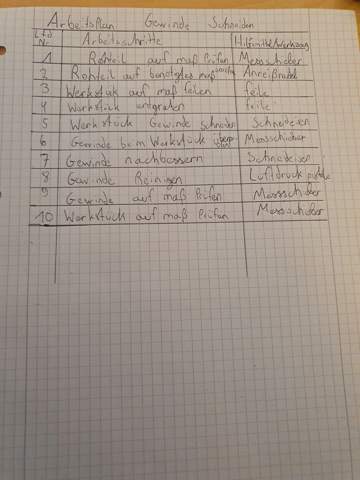 Arbeitsplan Gewinde Schneiden
Lfd Nr. Arbeitsschritte Hilfmittel/Werkzeug
1 Rohteil auf maß Prüfen Messschieber
2 Rohteil auf benötigtes maß Anreißnadel
3 Werkstük auf maß feilen feile
4 Werkstück entgraten feile
5 Werkstück Gewinde schneiden Schneideisen
6 Gewinde beim Werkstück Messschieber
7 Gewinde nachbessern Schneideisen
8 Gewinde Reinigen Luftdruck pistole
9 Gewinde auf maß Prüfen Messschieber
10 Werkstück auf maß Prüfen Messschieber